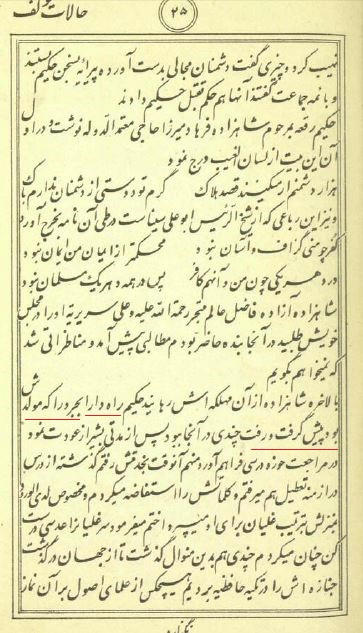 حالات مؤلف
۲۵
نهیب کرد و چیزی گفت دشمنان مجالی بدست آورده پیرایه بسخن حکیم بستند
و با ائمه جماعت گفتند آنها هم حکم بقتل حکیم دادند
حکیم رقعه بمرحوم شاهزاده فرهاد میرزا حاجی معتمدالدوله نوشت و در او
آن این بیت از لسان الغیب درج نمود
هزار دشمنم ار میکنند قصد هلاک گرم تو دوستی از دشمنان ندارم باک
و نیز این رباعی که از شیخ الرئیس ابوعلی سیناست در طی آن نامه بخرج آورد
کفر چو منی گزاف و آسان نبود محکمتر از ایمان من ایمان نبود
در دهر یکی چون من و آنهم کافر پس در همه دهر یک مسلمان نبود
شاهزاده آزاده فاضل عالم متبحر رحمة الله علیه و علی سریرته او را در مجلس
خویش طلبید در آنجا بنده حاضر بودم مطالبی پیش آمد و مناظراتی شد
که نمیخواهم بگویم
بالاخره شاهزاده از آن مهلکه اش رهانید حکیم راه دارابجرد را که مولدش
بود پیش گرفت و رفت چندی در آنجا بود پس از مدتی بشیراز عودت نمود
در مراجعت حوزه درسی فراهم آورد منهم آنوقت بخدمتش رفتم گذشته از درس
در ازمنه تعطیل هم میرفتم و کلماتش را استفاضه میکردم و مخصوص لدی الورود
بمنزلش بترتیب غلیان برای او میپرداختم میفرمود سر غلیان را عدسی درست
کن چنان میکردم چندی هم بدین منوال گذشت تا از جهان درگذشت
جنازه اش را در تکیه حافظیه بردیم هیچکس از علمای اصول بر آن نماز